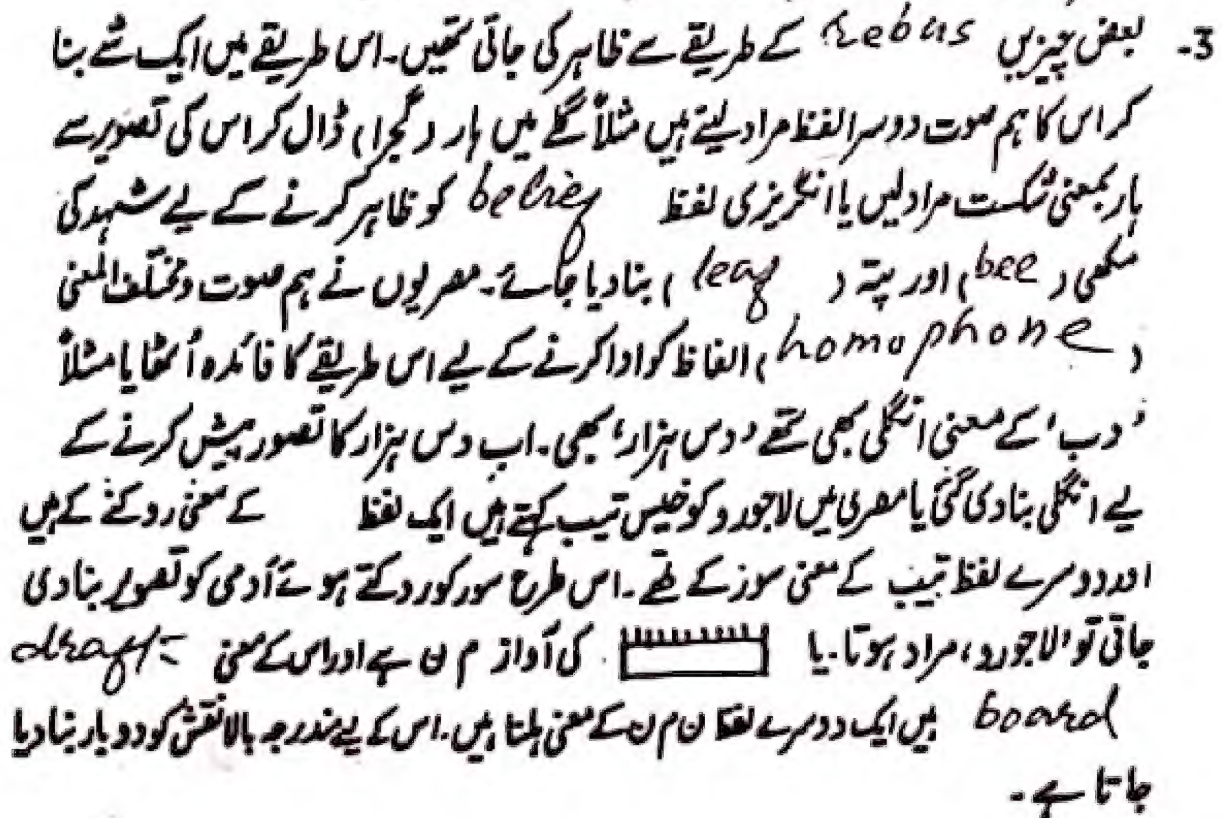 3- بعض چیزیں rebus کے طریقے سے ظاہر کی جاتی تھیں۔ اس طریقے میں ایک شے بنا
کر اس کا ہم صوت دوسرا لفظ مراد لیتے ہیں مثلاً گلے میں ہار (گجرا) ڈال کر اس کی تصویر سے
ہار بمعنی شکست مراد لیں یا انگریزی لفظ belief کو ظاہر کرنے کے لیے شہد کی
مکھی (bee) اور پتہ (leaf) بنا دیا جائے۔ مصریوں نے ہم صوت و مختلف المعنی
(homophone) الفاظ کو ادا کرنے کے لیے اس طریقے کا فائدہ اُٹھایا مثلاً
'دب' کے معنی انگلی بھی تھے 'دس ہزار' بھی۔ اب دس ہزار کا تصور پیش کرنے کے
لیے انگلی بنا دی گئی یا مصری میں لاجورد کو خیس تیب کہتے ہیں ایک لفظ کے معنی روکنے کے ہیں
اور دوسرے لفظ تیب کے معنی سور کے تھے۔ اس طرح سور کو روکتے ہوئے آدمی کو تصویر بنا دی
جاتی تو 'لاجورد' مراد ہوتا۔ یا کی آواز م ن ہے اور اس کے معنی draft-
board ہیں ایک دوسرے لفظ ن م ن کے معنی ہلنا ہیں۔ اس کے لیے مندرجہ بالا نقش کو دو بار بنا دیا
جاتا ہے۔